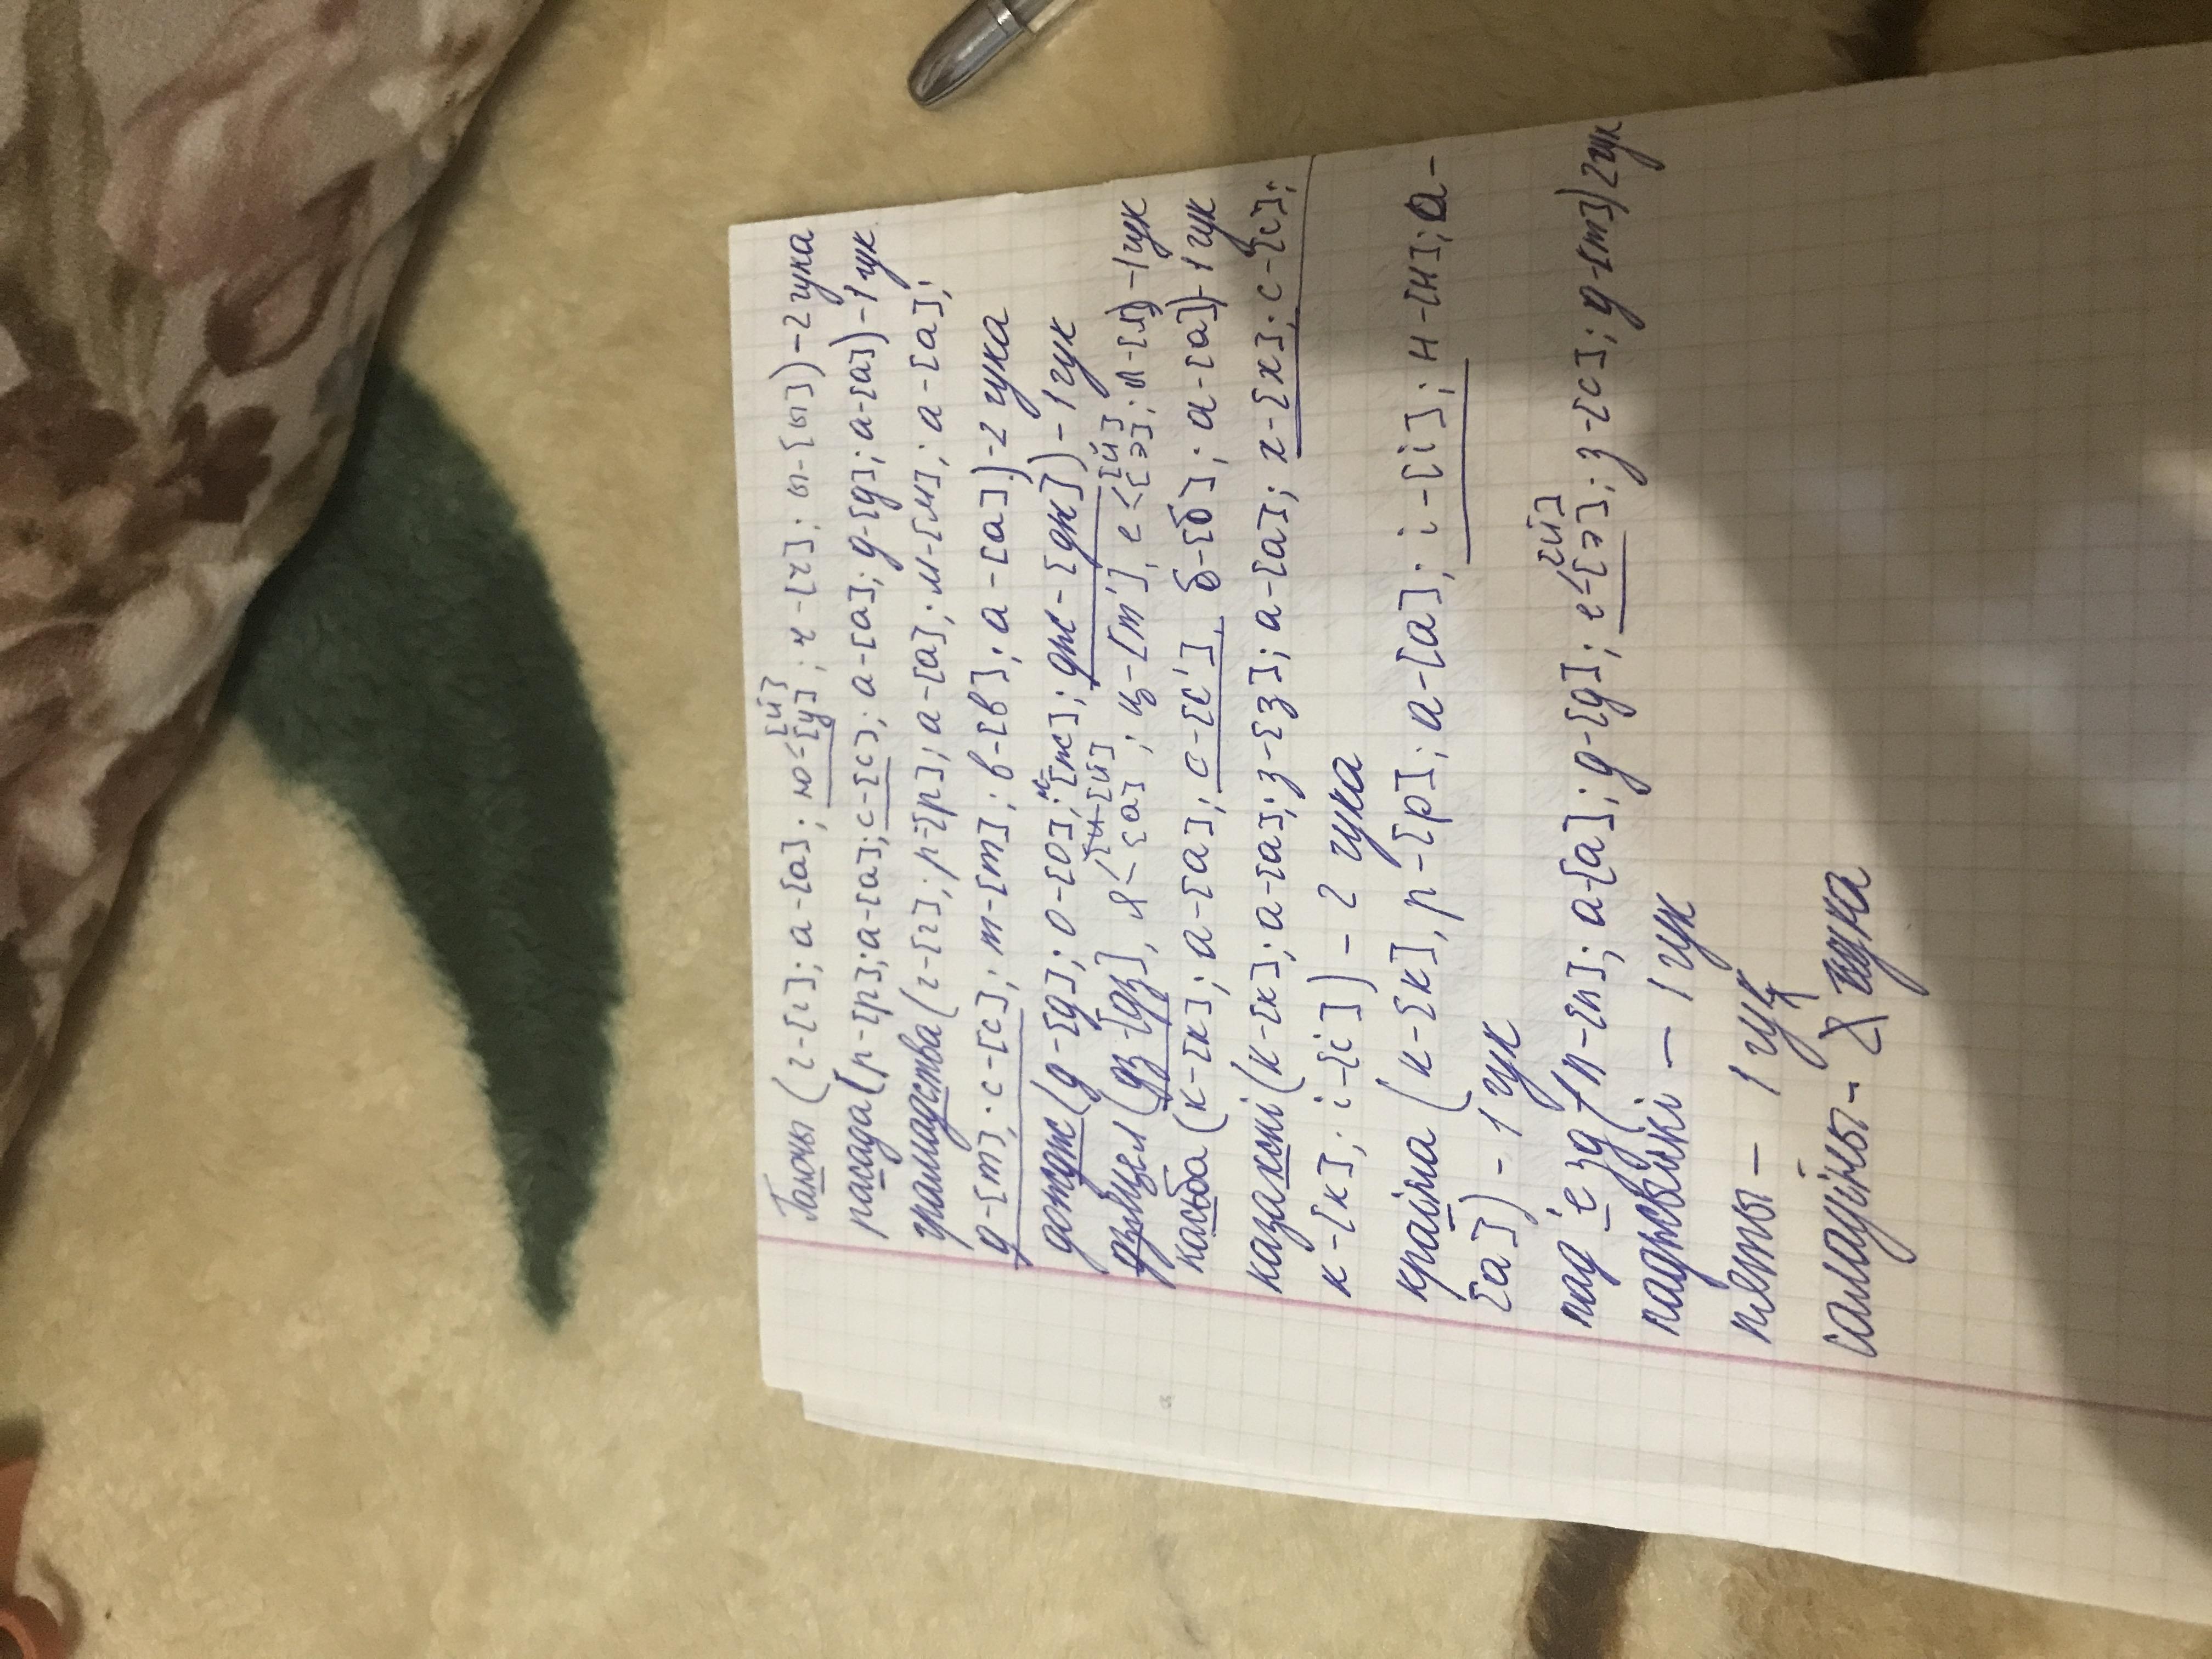 Гаючы (г-[г]; а-[а]; ю<[й][у]; ч-[ч]; ы-[ы]) - 2 гука
расада (р-[р]; а-[а]; с-[с]; а-[а]; д-[д]; а-[а]) - 1 гук
грамадства (г-[г]; р-[р]; а-[а]; м-[м]; а-[а];
д-[т]; с-[с]; т-[т]; в-[в]; а-[а]) - 2 гука
дождж (д-[д]; о-[о]; ж-[ж]; дж-[дж]) - 1 гук
дзьвіцел (дз-[дз], я<[й][а]; ц-[т'], е<[й][э]; л-[л]) - 1 гук
касьба (к-[к]; а-[а]; с-[с'], б-[б]; а-[а]) - 1 гук
казахскі (к-[к]; а-[а]; з-[з]; а-[а]; х-[х]; с-[с];
к-[к]; і-[і]) - 2 гука
краіна (к-[к], р-[р]; а-[а]; і-[і]; н-[н]; а-
[а]) - 1 гук
пад'езд (п-[п]; а-[а]; д-[д]; е<[й][э]; з-[с]; д-[т]) 2 гук
паджылкі - 1 гук
п'еты - 1 гук
саладзіны - 2 гука